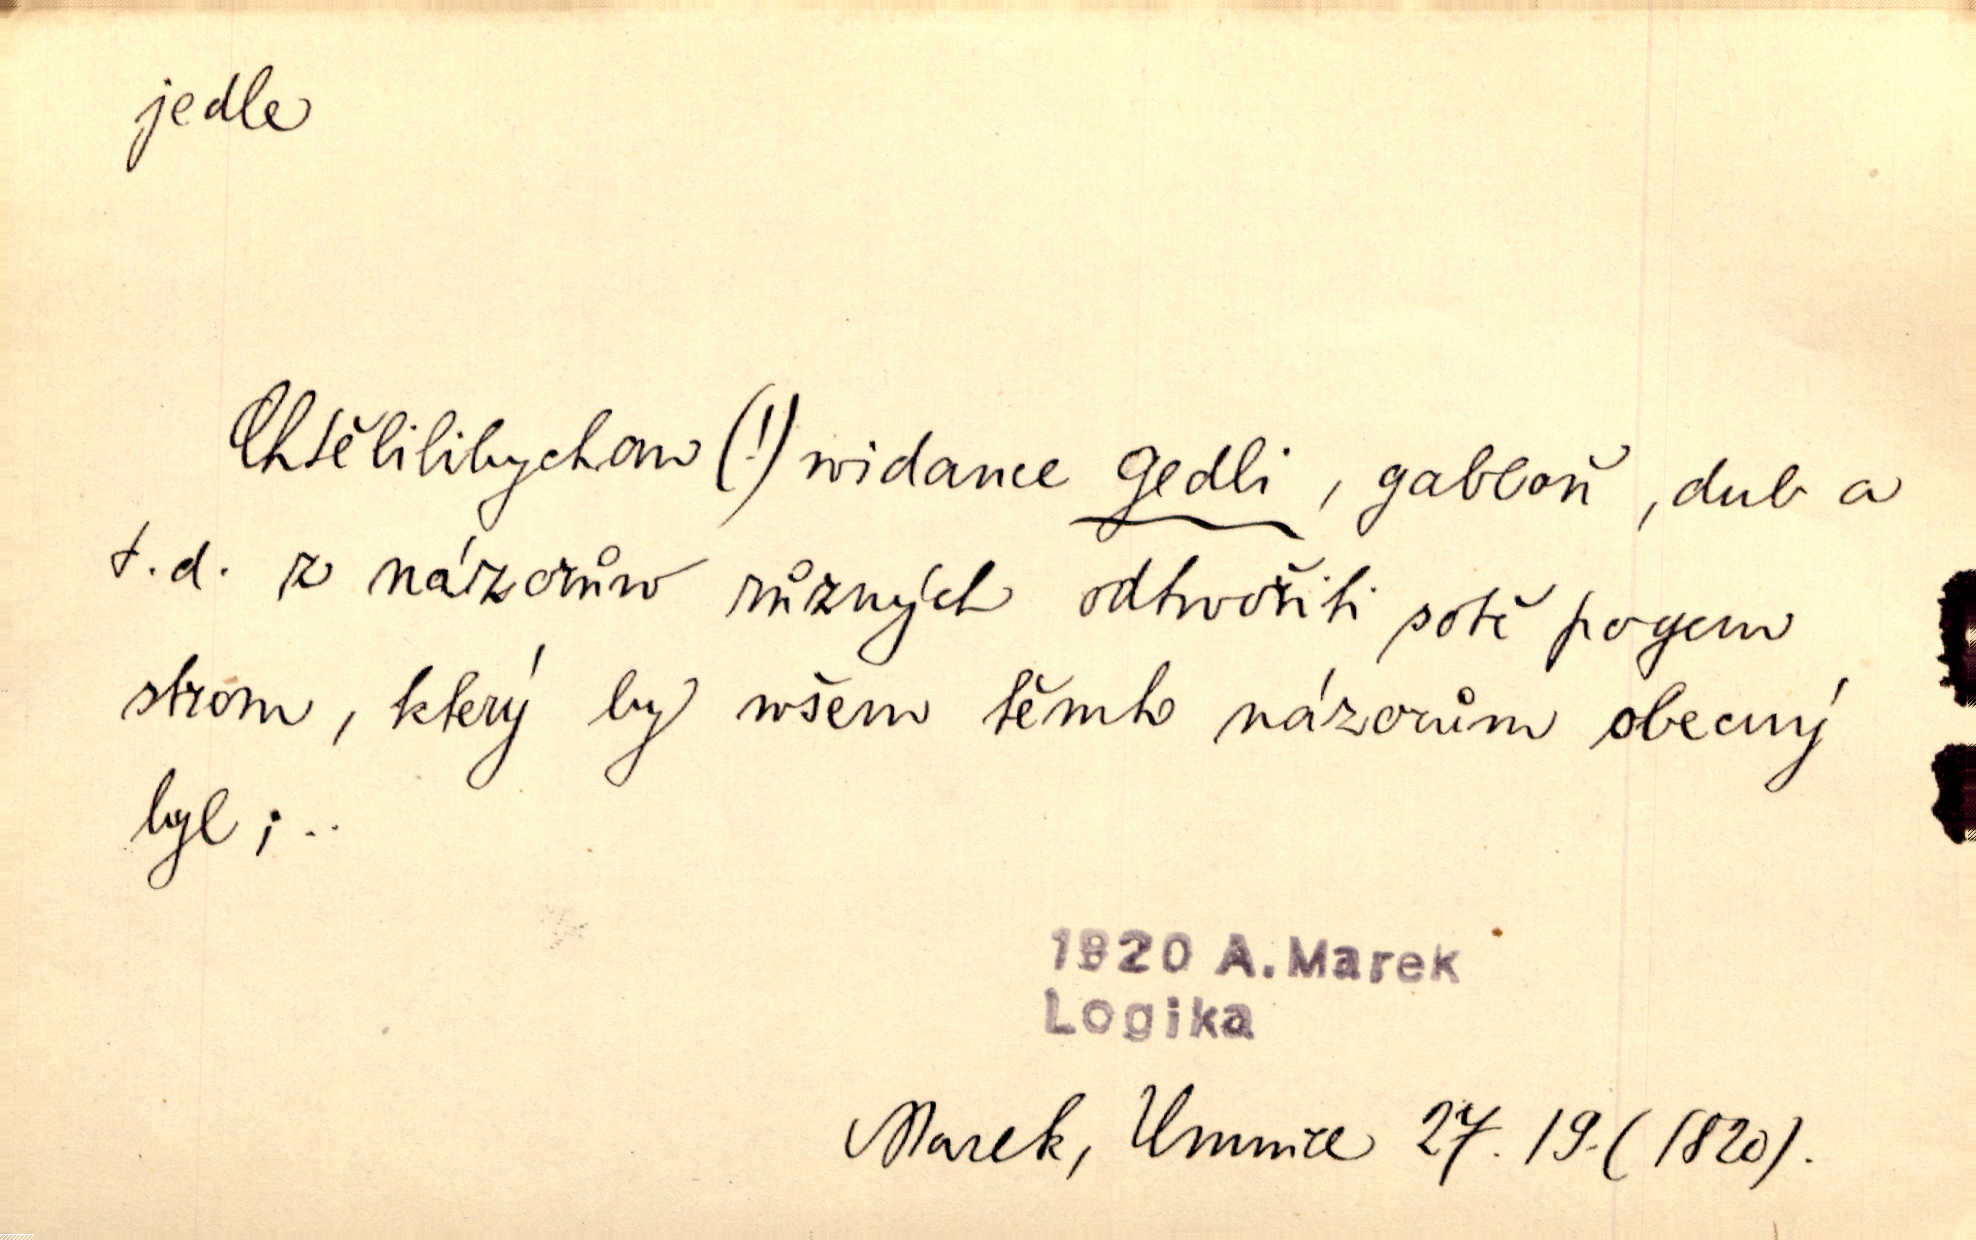 jedle
Chtělilibychom (!) widauce gedli, gabloň, dub a
t.d. z názorůw různých odtwořiti sobě pogem
strom, který by wšem těmto názorům obecný
byl; ..
1820 A. Marek
Logika
Marek, Umnice 27. 19. (1820).